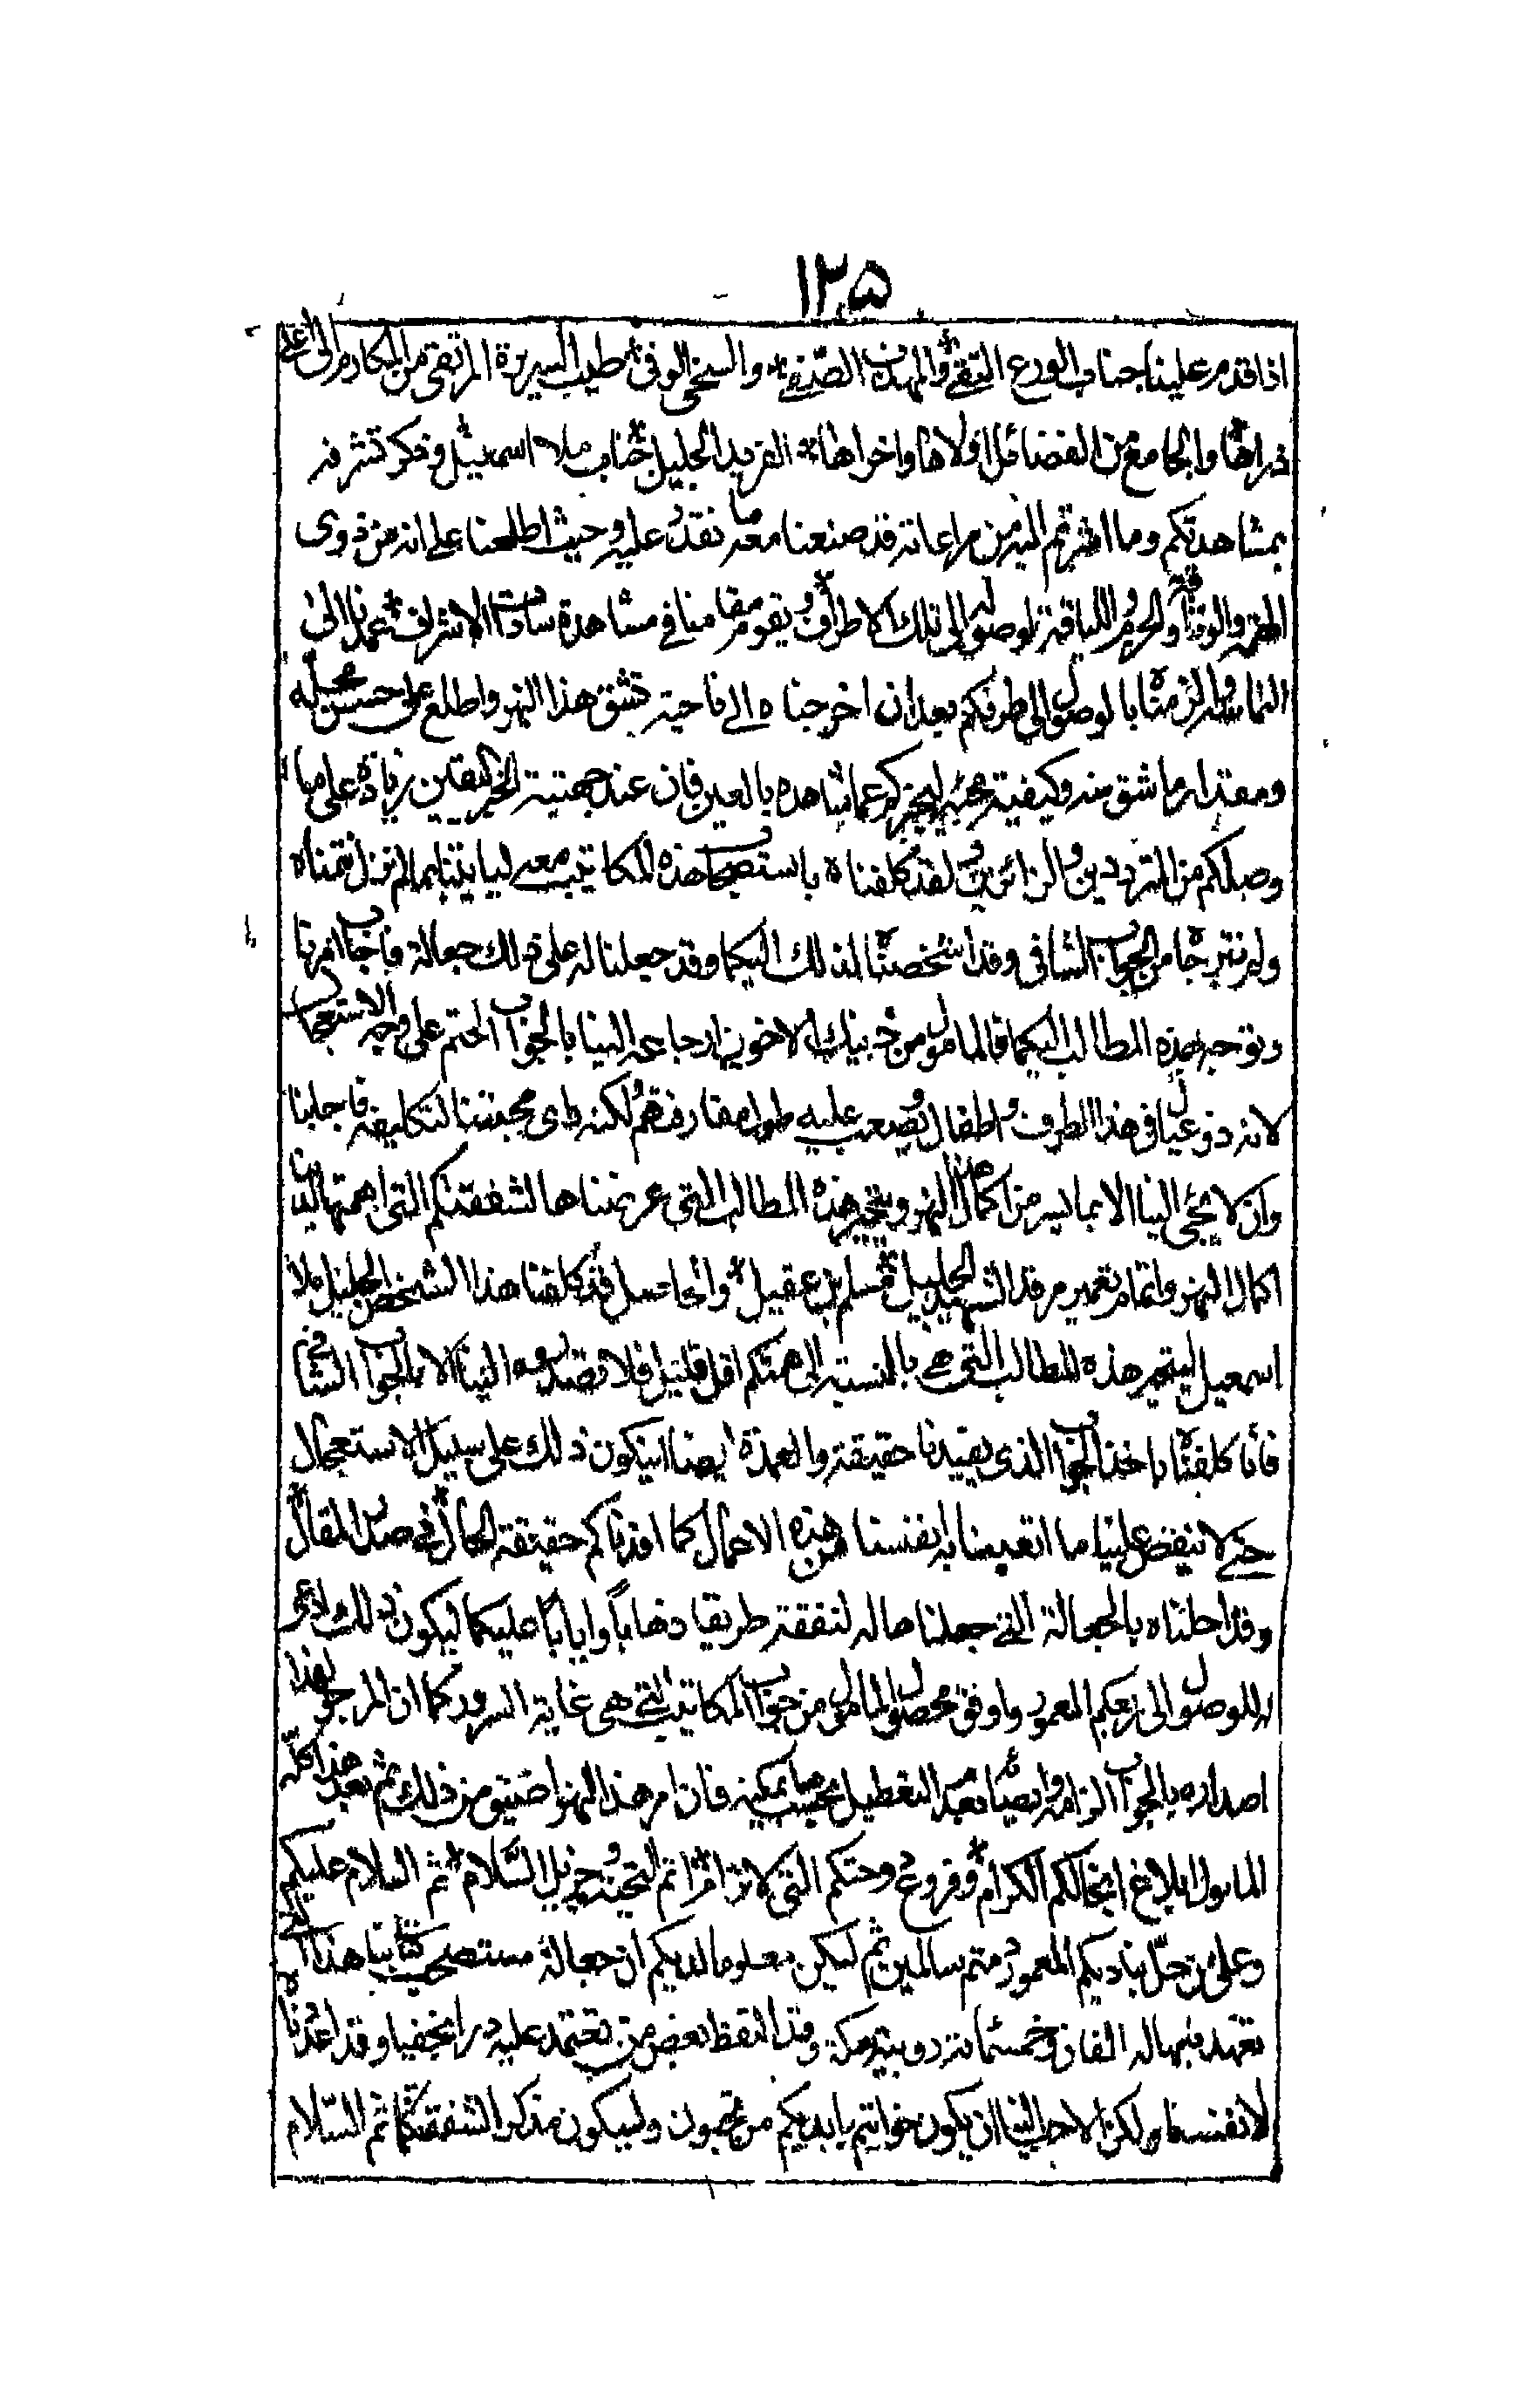 ١٢٥
اذا قدم علينا جناب الورع التقي والمهذب الصفي والسخي الوفي طيب السريرة المرتقى من المكارم الى اعلى
ذراها والجامع من الفضائل اولاها واخراها الفريد الجليل جناب ملا اسمعيل وذكر تشرفه
بمشاهدتكم وما اشرتم اليه من مراعاته قد صنعنا معه ما نقدر عليه وحيث اطلعنا على انه من ذوي
والوقار اللياقة لوصوله الى تلك الاطراف ويقوم مقامنا في مشاهدة سادتنا الاشراف
بالوصول الى طرفكم بعد ان اخرجناه الى ناحية تشق هذا النهر واطلع على حسن عمله
ومقدار ما شق منه وكيفية ليخبركم عما شاهده بالعين فان عند جهينة الخبر اليقين زيادة على ما
وصلكم من المترددين والزائرين لقد كلفناه باستصحاب هذه المكاتيب معه لياتينا بما لم نزل نتمناه
ولم نترجاه من الجواب الشافي وقد اشخصناه لذلك اليكما وقد جعلنا له على ذلك جعالة فاجاب امرنا
وتوجه بهذه المطالب اليكما فالمامول من ذينك الاخوين ارجاعه الينا بالجواب الحتم على وجه الاستعجال
لانه ذو عيال في هذا الطرف واطفال ويصعب عليه طول مفارقتهم ولكنه راى محبتنا لتكليفه فاجابنا
وان لا يجئ الينا الا بما يسر من اكمال النهر وتنجيز هذه المطالب التي عرضناها لشفقتكم التي اهمتها لدينا
اكمال النهر واتمام تعمير مرقد الشهيد الجليل مسلم بن عقيل والحاصل قد كلفنا هذا الشخص الجليل ملا
اسمعيل ليتم هذه المطالب التي هي بالنسبة الى همتكم اقل قليل فلا تصدروه الينا الا بالجواب الشافي
فانا كلفناه باخذ الجواب الذي يفيدنا حقيقة والعمدة ايضا ان يكون ذلك على سبيل الاستعجال
حتى لا ينقض علينا ما اتعبنا به انفسنا من هذه الاحمال كما افدناكم حقيقة الحال في صدر المقال
وقد احلناه بالجعالة التي جعلناها له لنفقة طريقه ذهابا وايابا عليكما ليكون ذلك ادعى
له للوصول الى ربعكم المعمور واوفق لحصول المامول من جواب المكاتيب التي هي غاية السرور كما ان المرجو
اصداره بالجواب الزامه وايضا بعد التعطيل بحسب ما يمكنه فان امر هذا النهر اضيق من ذلك ثم بعد هذا كله
المامول ابلاغ انجالكم الكرام وفروع دوحتكم التي لا ترام اتم التحية وجزيل السلام ثم السلام عليكم
وعلى من حل بناديكم المعمور دمتم سالمين ثم ليكن معلوما لديكم ان جعالة مستصحب كتابنا هذا التي
نتعهد فيها له الفان وخمسمائة روبية سكة وقد التقط بعض من نعتمد عليه درا نجفيا وقد اعددناه
لانفسنا ولكن الاحب الينا ان يكون خواتيم بايديكم من تحبون وليكون مذكرا لشفقتكما ثم السلام